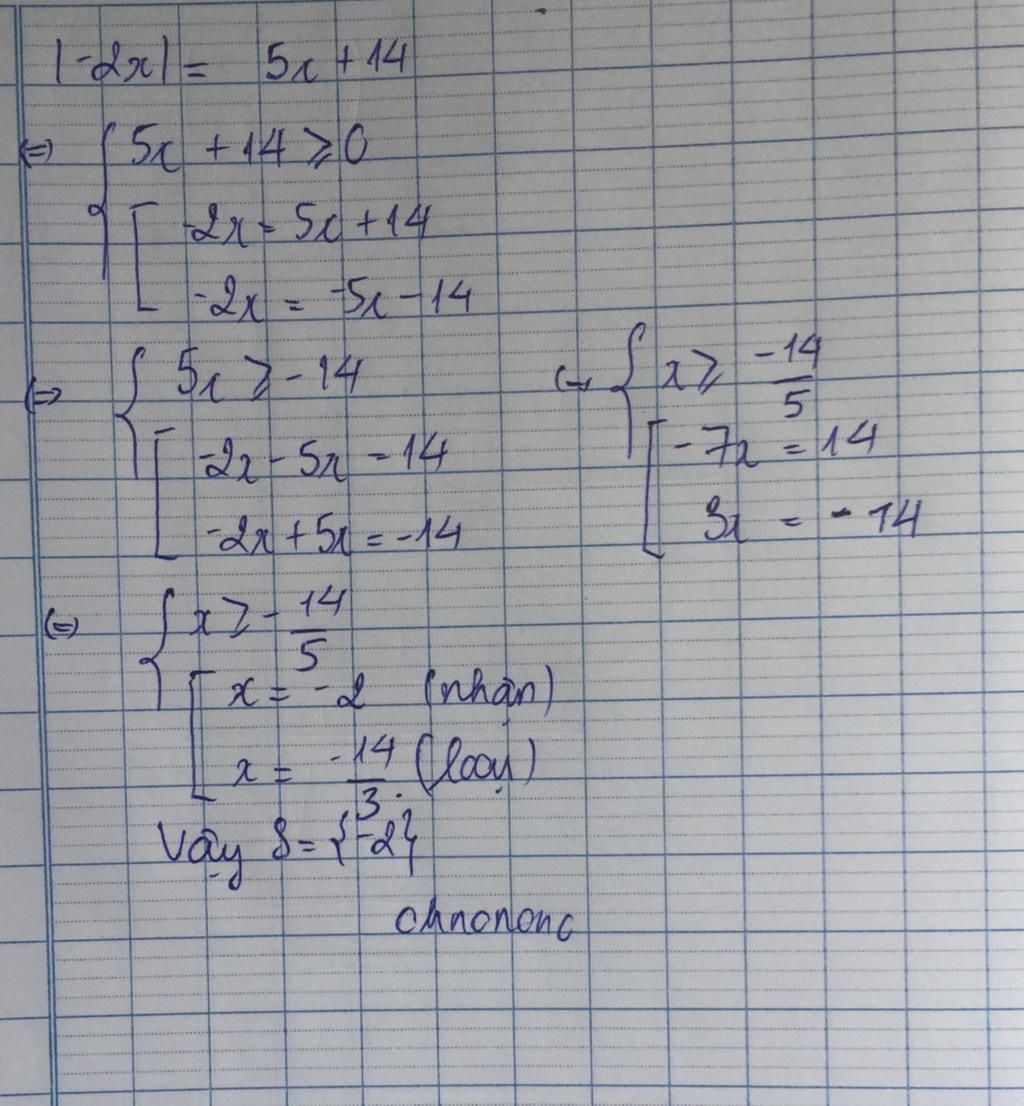 |-2x| = 5x + 14
(=) { 5x + 14 ≥ 0
[ -2x = 5x + 14
-2x = -5x - 14
(=) { 5x ≥ -14
[ -2x - 5x = 14
-2x + 5x = -14
(=) { x ≥ -14/5
[ -7x = 14
3x = -14
(=) { x ≥ -14/5
[ x = -2 (nhận)
x = -14/3 (loại)
Vậy S = {-2}